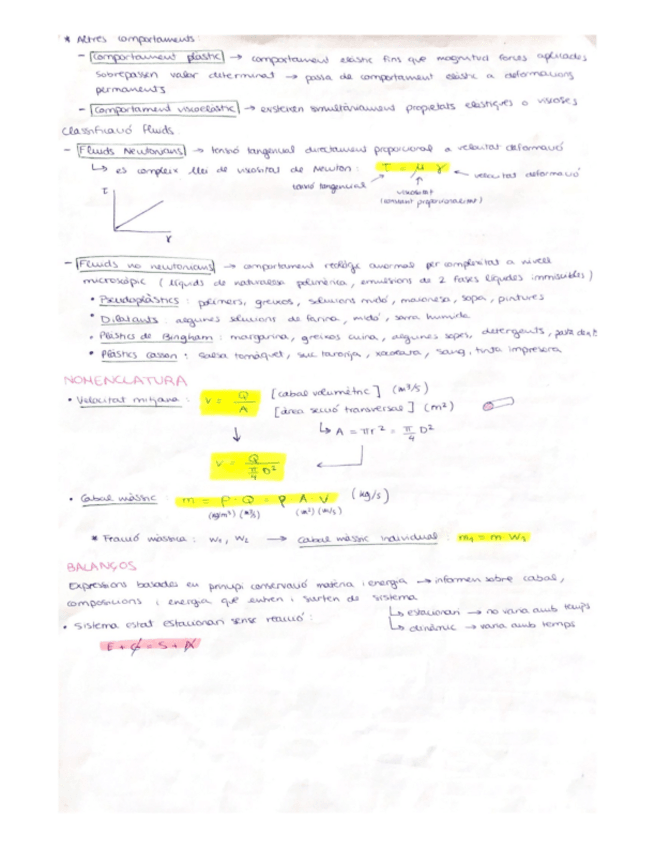 * Altres comportaments:
- Comportament plàstic → comportament elàstic fins que magnitud forces aplicades
sobrepassen valor determinat → passa de comportament elàstic a deformacions
permanents
- Comportament viscoelàstic → existeixen simultàniament propietats elàstiques o viscoses
Classificació fluids
- Fluids Newtonians → tensió tangencial directament proporcional a velocitat deformació
↳ es compleix llei de viscositat de Newton: τ = μ γ ← velocitat deformació
tensió tangencial
viscositat
(constant proporcionalitat)
τ
γ
- Fluids no newtonians → comportament reològic anormal per complexitat a nivell
microscòpic (líquids de naturalesa polimèrica, emulsions de 2 fases líquides immiscibles)
• Pseudoplàstics: polímers, greixos, solucions midó, maionesa, sopa, pintures
• Dilatants: algunes solucions de farina, midó, sorra humida
• Plàstics de Bingham: margarina, greixos cuina, algunes sopes, detergents, pasta dent
• Plàstics Casson: salsa tomàquet, suc taronja, xocolata, sang, tinta impresora
NOMENCLATURA
• Velocitat mitjana: v = Q/A [cabal volumètric] (m³/s)
[àrea secció transversal] (m²)
↓ ↳ A = πr² = π/4 D²
v = Q / π/4 D² ←
• Cabal màssic m = ρ · Q = ρ A · v (kg/s)
(kg/m³) (m³/s) (m²) (m/s)
* Fracció màssica: w₁, w₂ → cabal màssic individual: m₁ = m w₁
BALANÇOS
Expressions basades en principi conservació matèria i energia → informen sobre cabal,
composicions i energia que entren i surten de sistema
↳ estacionari → no varia amb temps
↳ dinàmic → varia amb temps
• Sistema estat estacionari sense reacció:
E + G = S + A